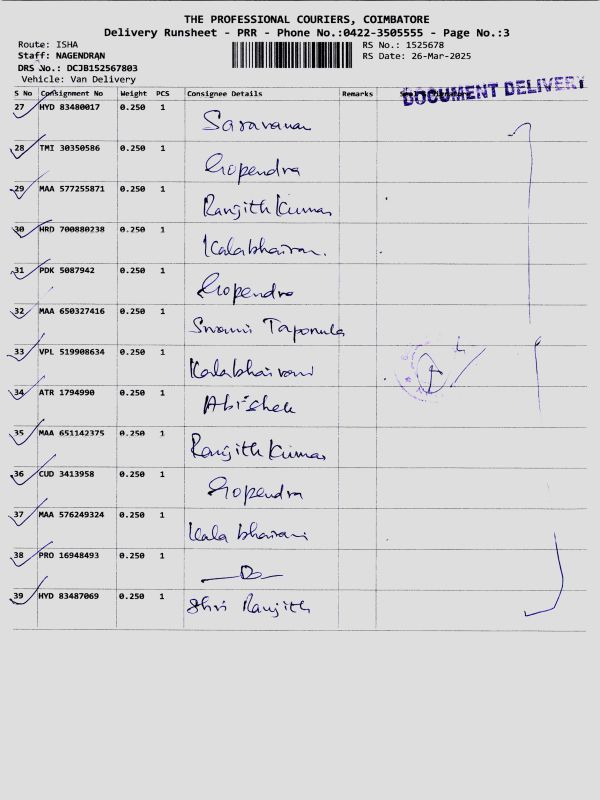 THE PROFESSIONAL COURIERS, COIMBATORE
Delivery Runsheet - PRR - Phone No.:0422-3505555 - Page No.:3
Route: ISHA
RS No.: 1525678
Staff: NAGENDRAN
RS Date: 26-Mar-2025
DRS No.: DCJB152567803
Vehicle: Van Delivery
S No Consignment No Weight PCS Consignee Details Remarks
DOCUMENT DELIVERY
27 HYD 83480017 0.250 1
Saravanan
28 TMI 30350586 0.250 1
Gopendra
29 MAA 577255871 0.250 1
Ranjith Kumar
30 HRD 700880238 0.250 1
Kalabhairavan.
31 PDK 5087942 0.250 1
Gopendra
32 MAA 650327416 0.250 1
Swami Tapomula
33 VPL 519908634 0.250 1
Kalabhairavi
34 ATR 1794990 0.250 1
Abishek
35 MAA 651142375 0.250 1
Ranjith Kumar
36 CUD 3413958 0.250 1
Gopendra
37 MAA 576249324 0.250 1
Kala bhairavi
38 PRO 16948493 0.250 1
39 HYD 83487069 0.250 1
Shri Ranjith